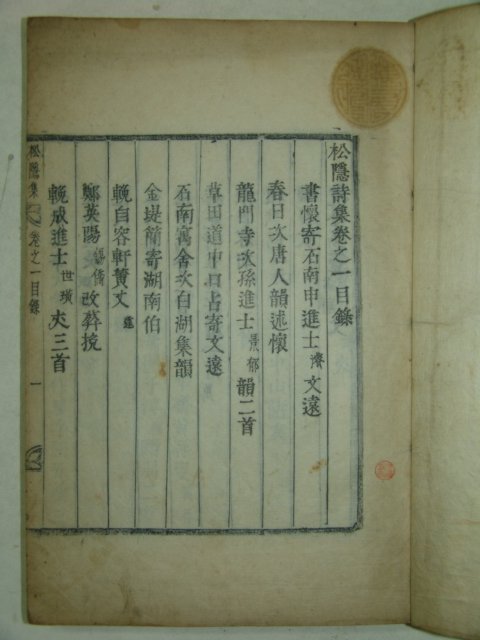 松隱詩集卷之一目錄
書懷寄石南申進士濟文遠
春日次唐人韻述懷
龍門寺次孫進士郁韻二首
草田道中口占寄文遠
石南寓舍次自湖集韻
金堤簡寄湖南伯
輓自容軒黃丈
鄭英陽改葬挽
輓成進士世璜大三首
松隱集 卷之一目錄 一